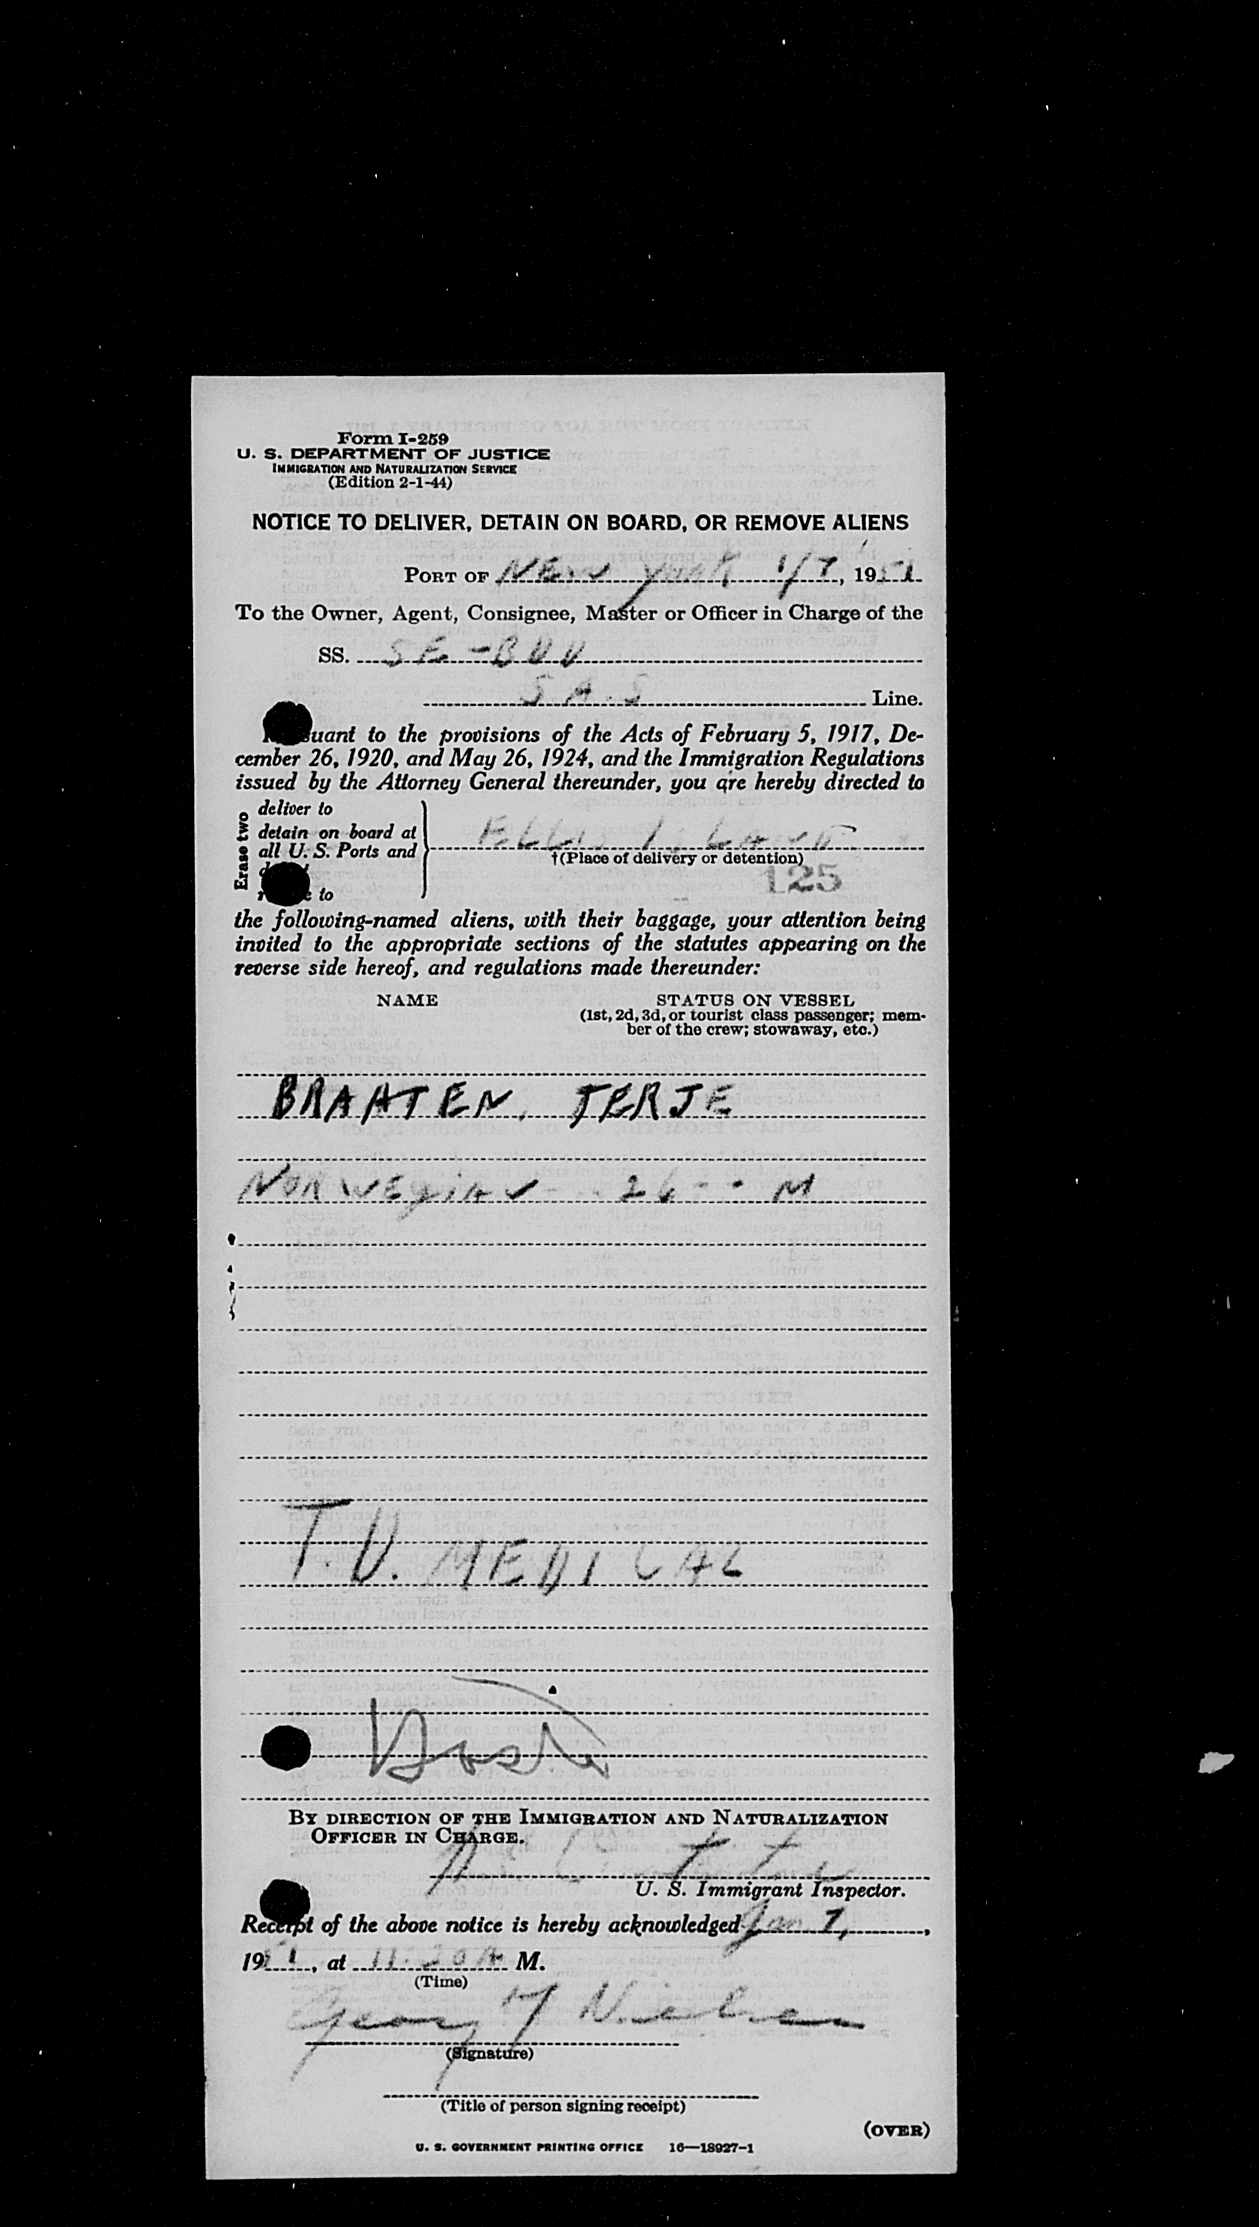 Form I-259
U. S. DEPARTMENT OF JUSTICE
IMMIGRATION AND NATURALIZATION SERVICE
(Edition 2-1-44)
NOTICE TO DELIVER, DETAIN ON BOARD, OR REMOVE ALIENS
PORT OF NEW YORK 1/7, 1951
To the Owner, Agent, Consignee, Master or Officer in Charge of the
SS. SE-BUU
S.A.S Line.
suant to the provisions of the Acts of February 5, 1917, De-
cember 26, 1920, and May 26, 1924, and the Immigration Regulations
issued by the Attorney General thereunder, you are hereby directed to
Erase two
deliver to
detain on board at
all U. S. Ports and
to
ELLIS ISLAND
†(Place of delivery or detention)
125
the following-named aliens, with their baggage, your attention being
invited to the appropriate sections of the statutes appearing on the
reverse side hereof, and regulations made thereunder:
NAME STATUS ON VESSEL
(1st, 2d, 3d, or tourist class passenger; mem-
ber of the crew; stowaway, etc.)
BRAATEN, TERJE
NORWEGIAN - 26 - M
T.D. MEDICAL
BY DIRECTION OF THE IMMIGRATION AND NATURALIZATION
OFFICER IN CHARGE.
U. S. Immigrant Inspector.
Receipt of the above notice is hereby acknowledged Jan. 7,
1951, at 11:20 A M.
(Time)
Georg Nielsen
(Signature)
(Title of person signing receipt)
(OVER)
U. S. GOVERNMENT PRINTING OFFICE 16—18927-1